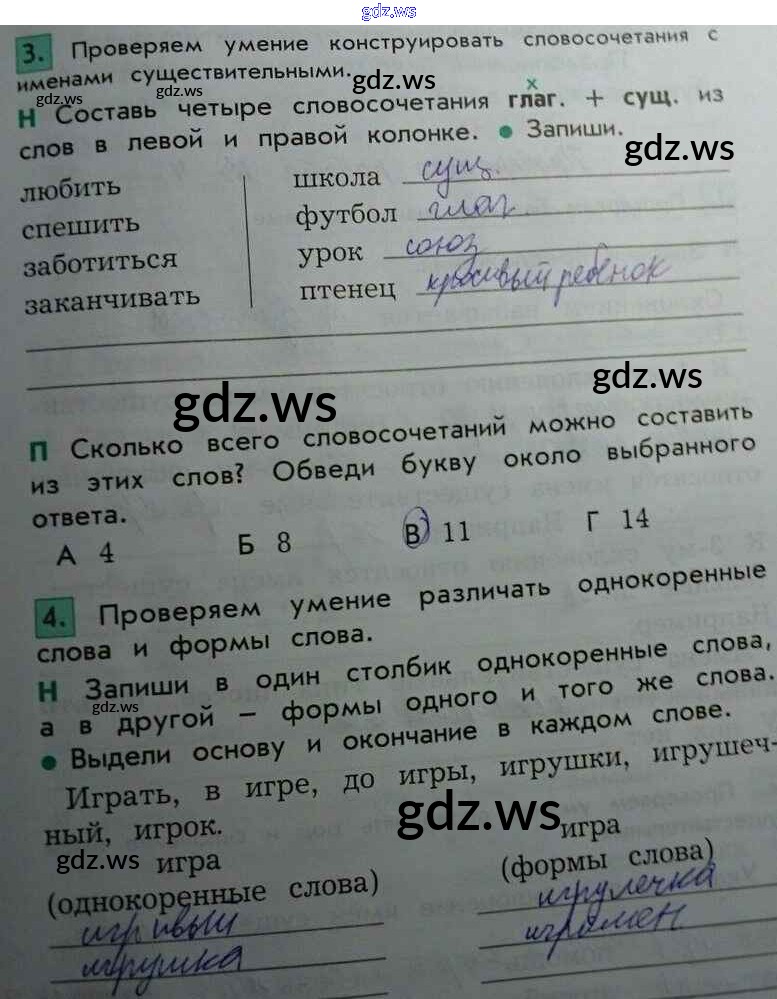 gdz.ws
3. Проверяем умение конструировать словосочетания с
именами существительными.
gdz.ws
gdz.ws
gdz.ws
х
Н Составь четыре словосочетания глаг. + сущ. из
слов в левой и правой колонке. ● Запиши.
gdz.ws
любить
школа сущ.
спешить
футбол глаг.
заботиться
урок союз
заканчивать
птенец красивый ребёнок
gdz.ws
gdz.ws
П Сколько всего словосочетаний можно составить
из этих слов? Обведи букву около выбранного
ответа.
А 4 Б 8 В 11 Г 14
4. Проверяем умение различать однокоренные
слова и формы слова.
Н Запиши в один столбик однокоренные слова,
gdz.ws
а в другой – формы одного и того же слова.
● Выдели основу и окончание в каждом слове.
Играть, в игре, до игры, игрушки, игрушеч-
ный, игрок.
gdz.ws
gdz.ws
игра
(однокоренные слова)
игривый
игрушка
игра
(формы слова)
игрулечка
играмен